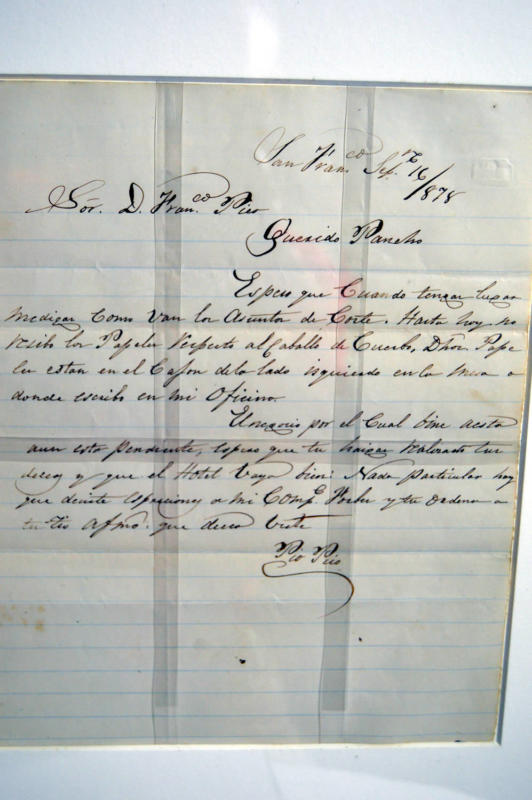 San Fran.co Sep.re 16/1878
Sor. D. Fran.co Pico
Querido Pancho
Espero que Cuando tengas lugar
me digas Como Van los Asuntos de Corte. Hasta hoy no
recibo los Papeles Respecto al Caballo de Cuerbo, Dhos. Pape
les estan en el Cajon de lo lado isquierdo en la Mesa a
donde escribo en mi Oficina.
El negocio por el Cual bine a esta
aun esta pendiente, espero que tu haigas
y que el Hotel Vaya bien. Nada particular hay
que decirte a mi Comp.e y tu ordena a
tu tio Afmo. que desea Verte
Pio Pico